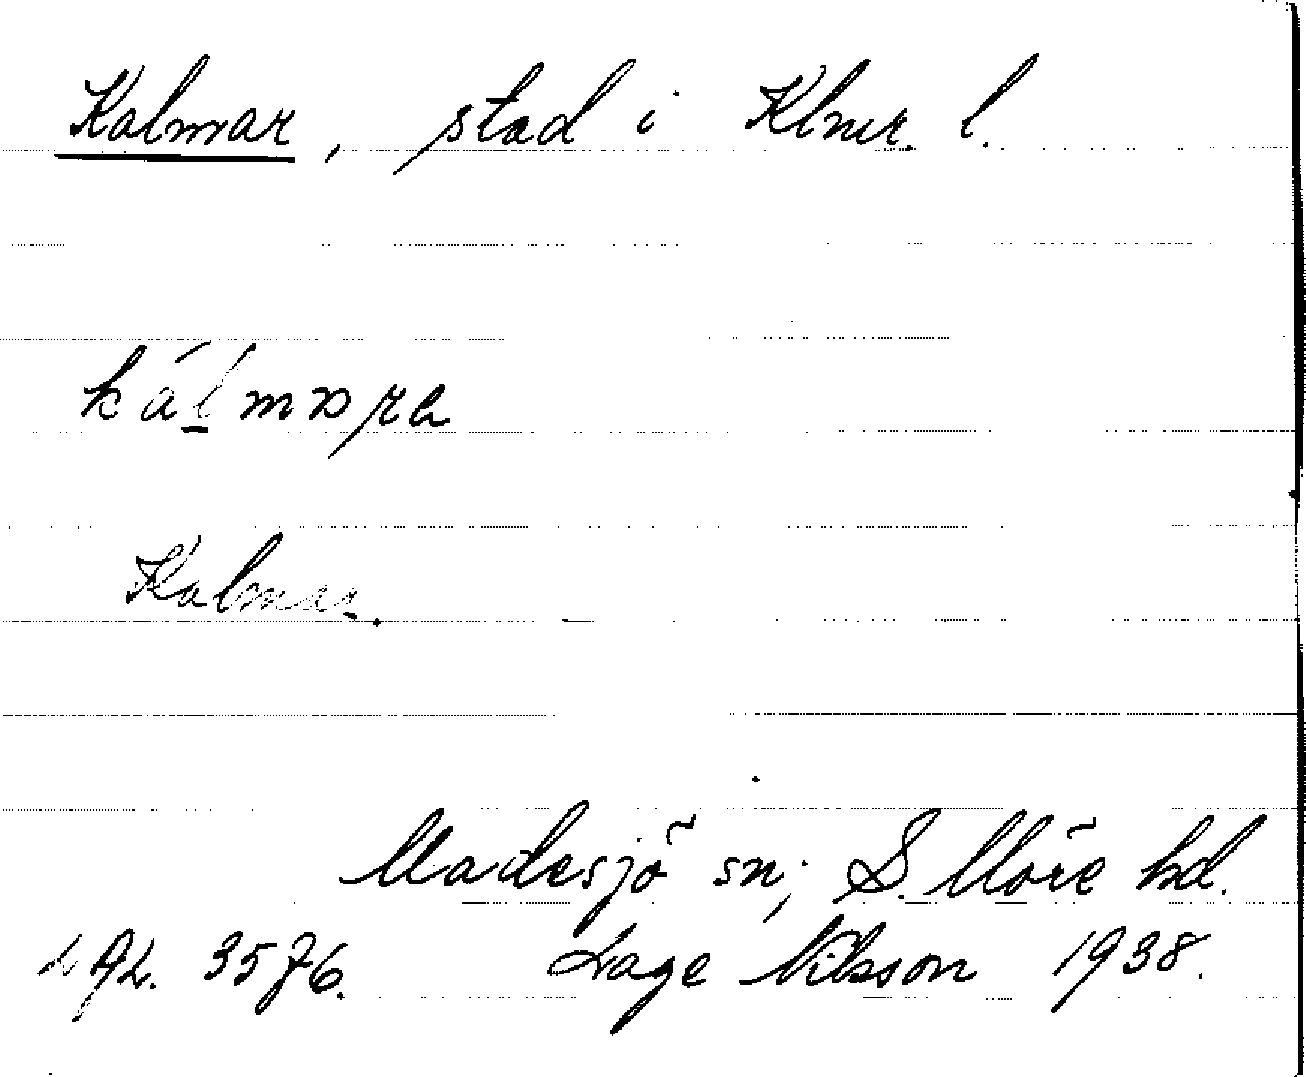 Kalmar, stad i Klmr. l.
Kalmar.
Madesjö sn; S. Möre hd.
3576. Lage Nilsson 1938.